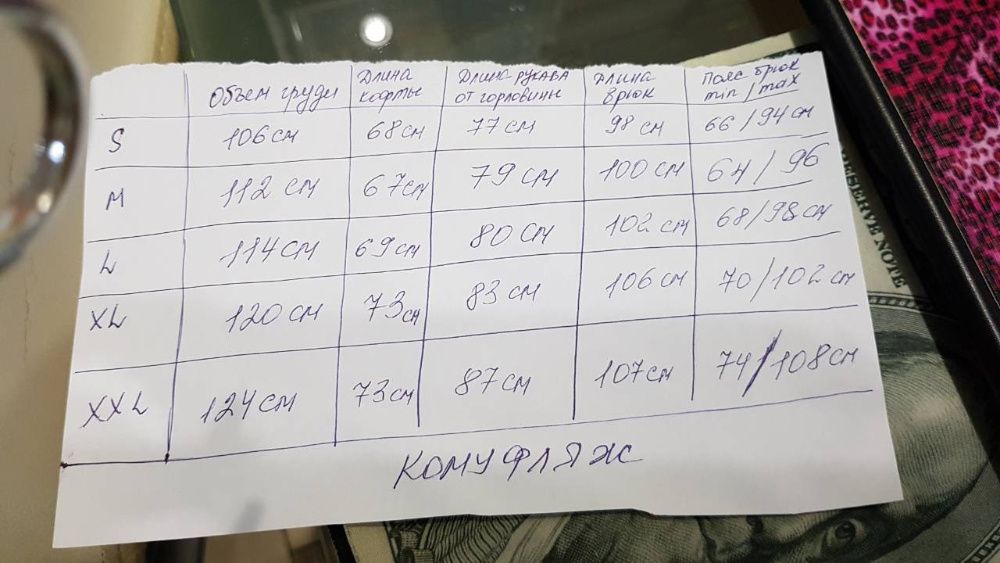 Объем груди Длина кофты Длина рукава от горловины Длина брюк Пояс брюк min/max
S 106 см 68 см 77 см 98 см 66/94 см
M 112 см 67 см 79 см 100 см 64/96
L 114 см 69 см 80 см 102 см 68/98 см
XL 120 см 73 см 83 см 106 см 70/102 см
XXL 124 см 73 см 87 см 107 см 74/108 см
КОМУФЛЯЖ
RESERVE NOTE